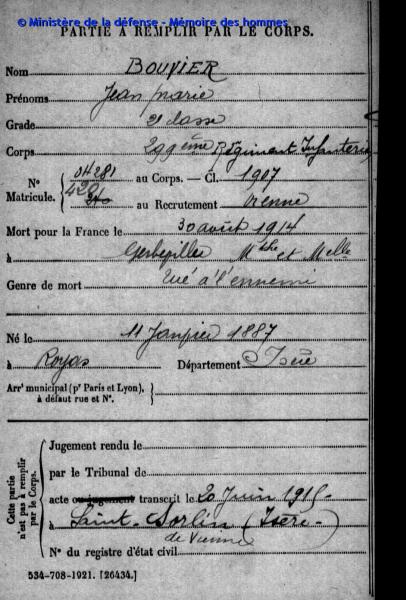 © Ministère de la défense - Mémoire des hommes
PARTIE A REMPLIR PAR LE CORPS.
Nom BOUVIER
Prénoms Jean Marie
Grade 2e classe
Corps 299ème Régiment Infanterie
N° Matricule. 04281 au Corps. — Cl. 1907
au Recrutement Vienne
Mort pour la France le 30 août 1914
à Gerbepiller Mthe et Melle
Genre de mort Tué à l'ennemi
Né le 11 Janvier 1887
à Royas Département Isère
Arrt municipal (pr Paris et Lyon), à défaut rue et N°.
Cette partie n'est pas à remplir par le Corps.
Jugement rendu le
par le Tribunal de
acte ou jugement transcrit le 20 Juin 1915
à Saint-Sorlin (Isère)
de Vienne
N° du registre d'état civil
534-708-1921. [26434.]